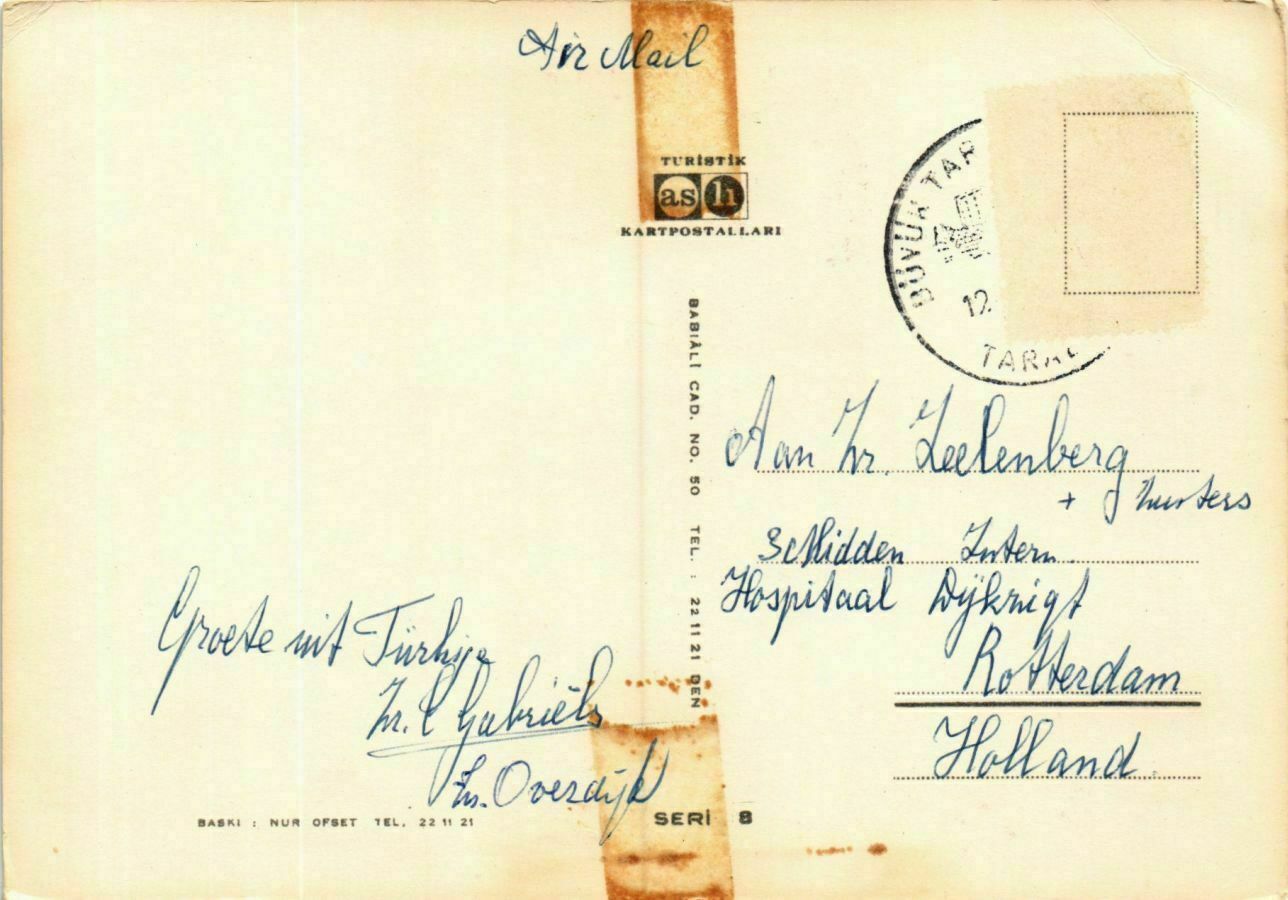 Air Mail
TURİSTİK
aslı
KARTPOSTALLARI
BÜYÜK TAR
12.
TARA
BABIÂLİ CAD. NO. 50 TEL. : 22 11 21 DEN
Aan Zr. Zeelenberg
+ zusters
3e Midden Intern.
Hospitaal Dijkzigt
Rotterdam
Holland.
Groete uit Türkije
Zr. C Gabriëls
Zr. Overdijk
BASKI : NUR OFSET TEL. 22 11 21
SERİ 8